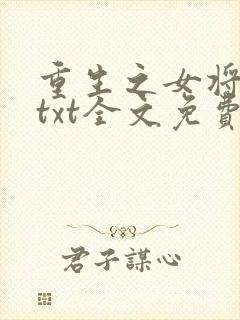 重生之女将
txt全文免費
君子謀心